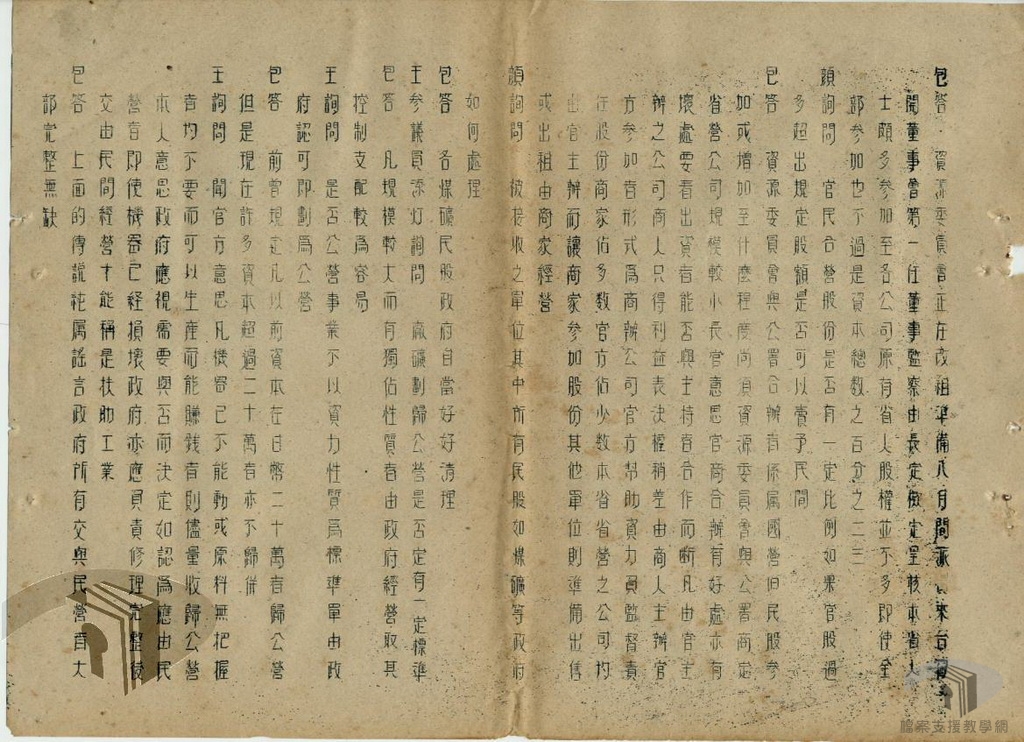 包答 資源委員會正在改組準備八月間派 來台
開董事會第一任董事監察由長定擬定呈核本省人
士頗多參加至各公司原有省人股權並不多即使全
部參加也不過是資本總數之百分之二三
顏詢問 官民合營股份是否有一定比例如果官股過
多超出規定股額是否可以賣予民間
包答 資源委員會與公署合辦者係屬國營但民股參
加或增加至什麼程度尚須資源委員會與公署商定
省營公司規模較小長官意思官商合辦有好處亦有
壞處要看出資者能否與主持者合作而斷凡由官主
辦之公司商人只得利益表決權稍差由商人主辦官
方參加者形式為商辦公司官方幫助資力負監督責
任股份商家佔多數官方佔少數本省省營之公司均
由官主辦而讓商家參加股份其他單位則準備出售
或出租由商家經營
顏詢問 被接收之單位其中所有民股如煤礦等政府
如何處理
包答 各煤礦民股政府自當好好清理
王參議員添灯詢問 廠礦劃歸公營是否定有一定標準
包答 凡規模較大而有獨佔性質者由政府經營取其
控制支配較為容易
王詢問 是否公營事業不以資力性質為標準單由政
府認可即劃為公營
包答 前曾規定凡以前資本在日幣二十萬者歸公營
但是現在許多資本超過二十萬者亦不歸併
王詢問 聞官方意思凡機器已不能動或原料無把握
者均不要而可以生產而能賺錢者則儘量收歸公營
本人意思政府應視需要與否而決定如認為應由民
營者即使機器已經損壞政府亦應負責修理完整後
交由民間經營才能稱是扶助工業
包答 上面的傳說純屬謠言政府所有交與民營者大
部完整無缺
檔案支援教學網